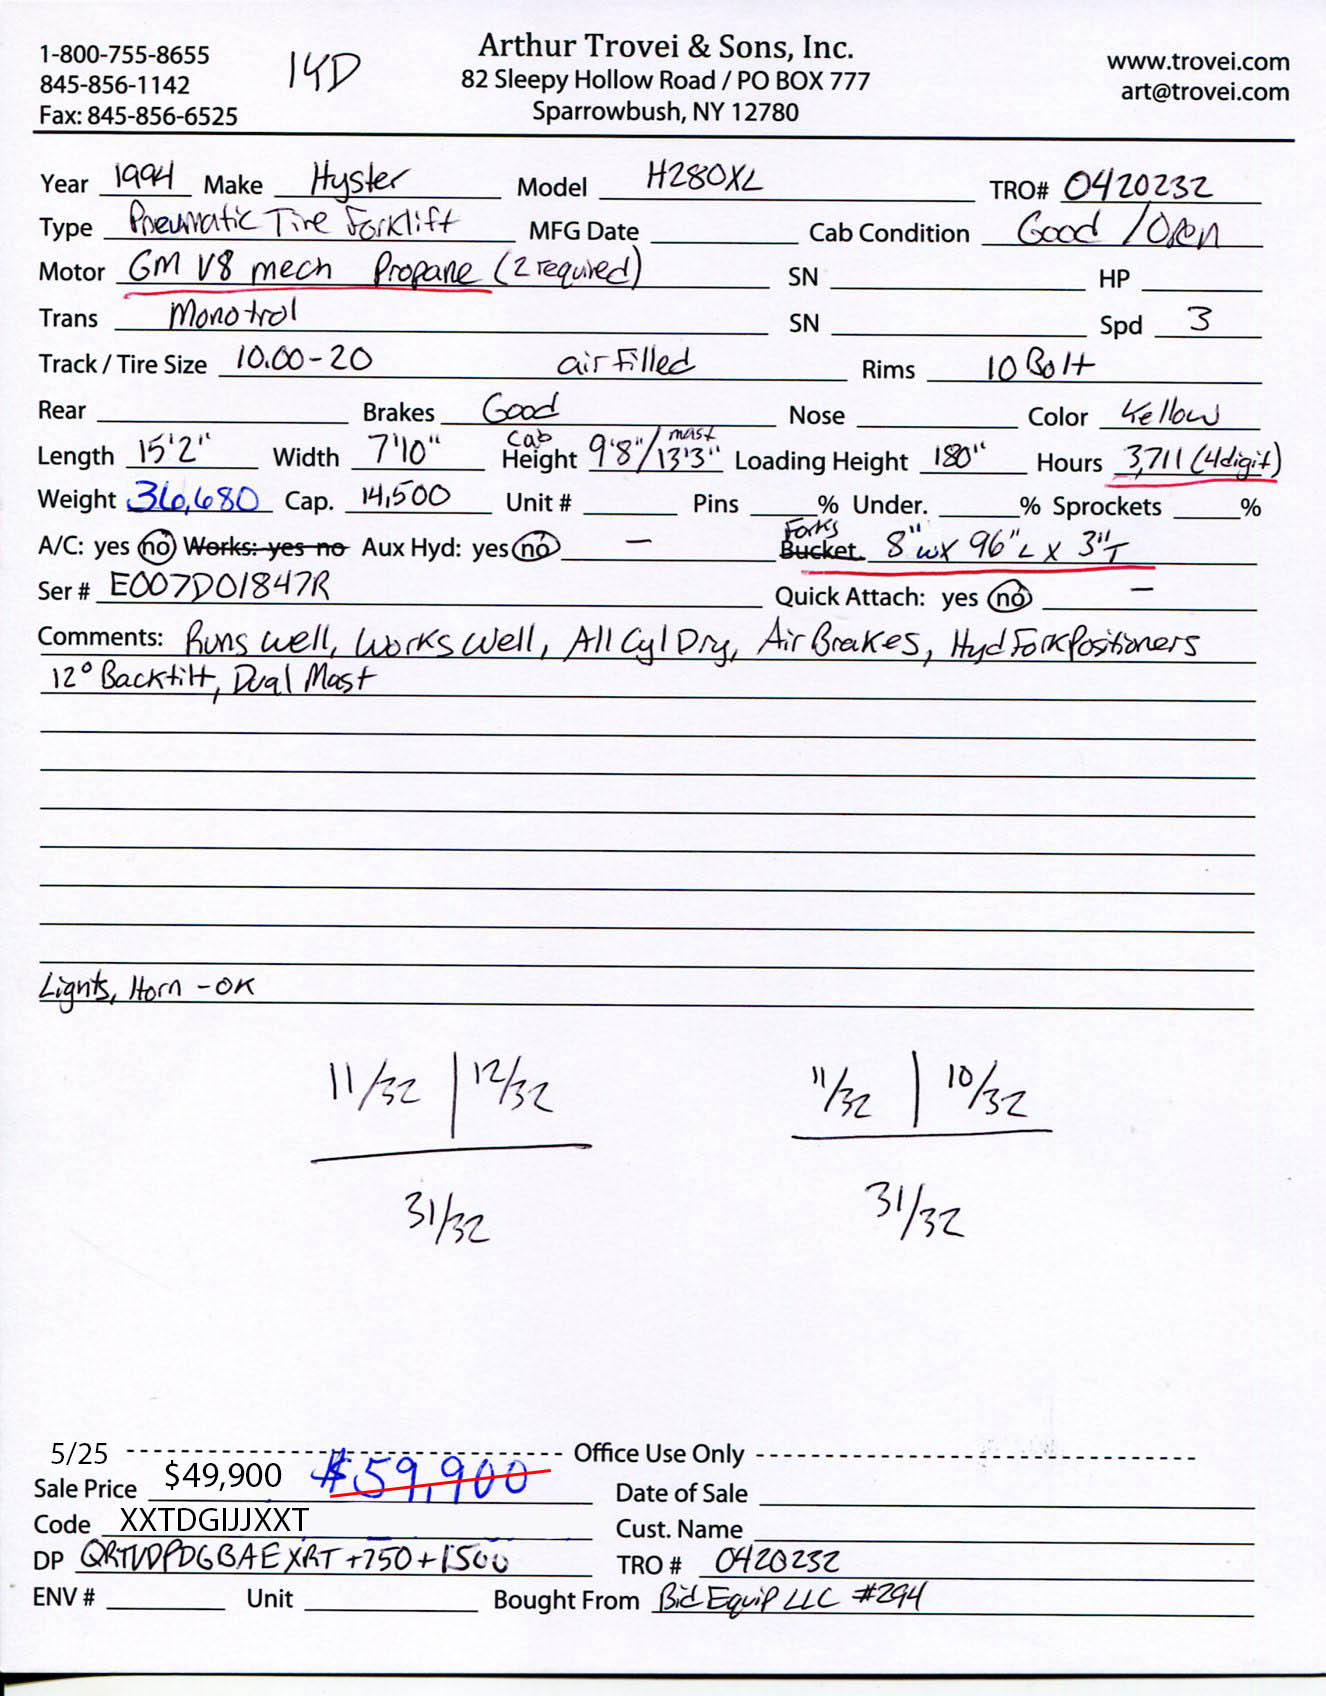 1-800-755-8655
845-856-1142
Fax: 845-856-6525
14D
Arthur Trovei & Sons, Inc.
82 Sleepy Hollow Road / PO BOX 777
Sparrowbush, NY 12780
www.trovei.com
art@trovei.com
Year 1994 Make Hyster Model H280XL TRO# 0420232
Type Pneumatic Tire Forklift MFG Date Cab Condition Good / Open
Motor GM V8 mech Propane (2 required) SN HP
Trans Monotrol SN Spd 3
Track / Tire Size 10.00-20 air filled Rims 10 Bolt
Rear Brakes Good Nose Color Yellow
Length 15'2" Width 7'10" Cab Height 9'8" / mast 13'3" Loading Height 180" Hours 3,711 (4digit)
Weight 36,680 Cap. 14,500 Unit # Pins % Under. % Sprockets %
A/C: yes no Works: yes no Aux Hyd: yes no – Bucket Forks 8"W x 96"L x 3"T
Ser # E007D01847R Quick Attach: yes no –
Comments: Runs well, Works Well, All Cyl Dry, Air Brakes, Hyd Fork Positioners
12° Backtilt, Dual Mast
Lights, Horn - OK
11/32 | 12/32 11/32 | 10/32
31/32 31/32
5/25 Office Use Only
Sale Price $49,900 $59,900 Date of Sale
Code XXTDGIJJXXT Cust. Name
DP QRTVDPDGBAEXRT +750+1500 TRO # 0420232
ENV # Unit Bought From Bid Equip LLC #294